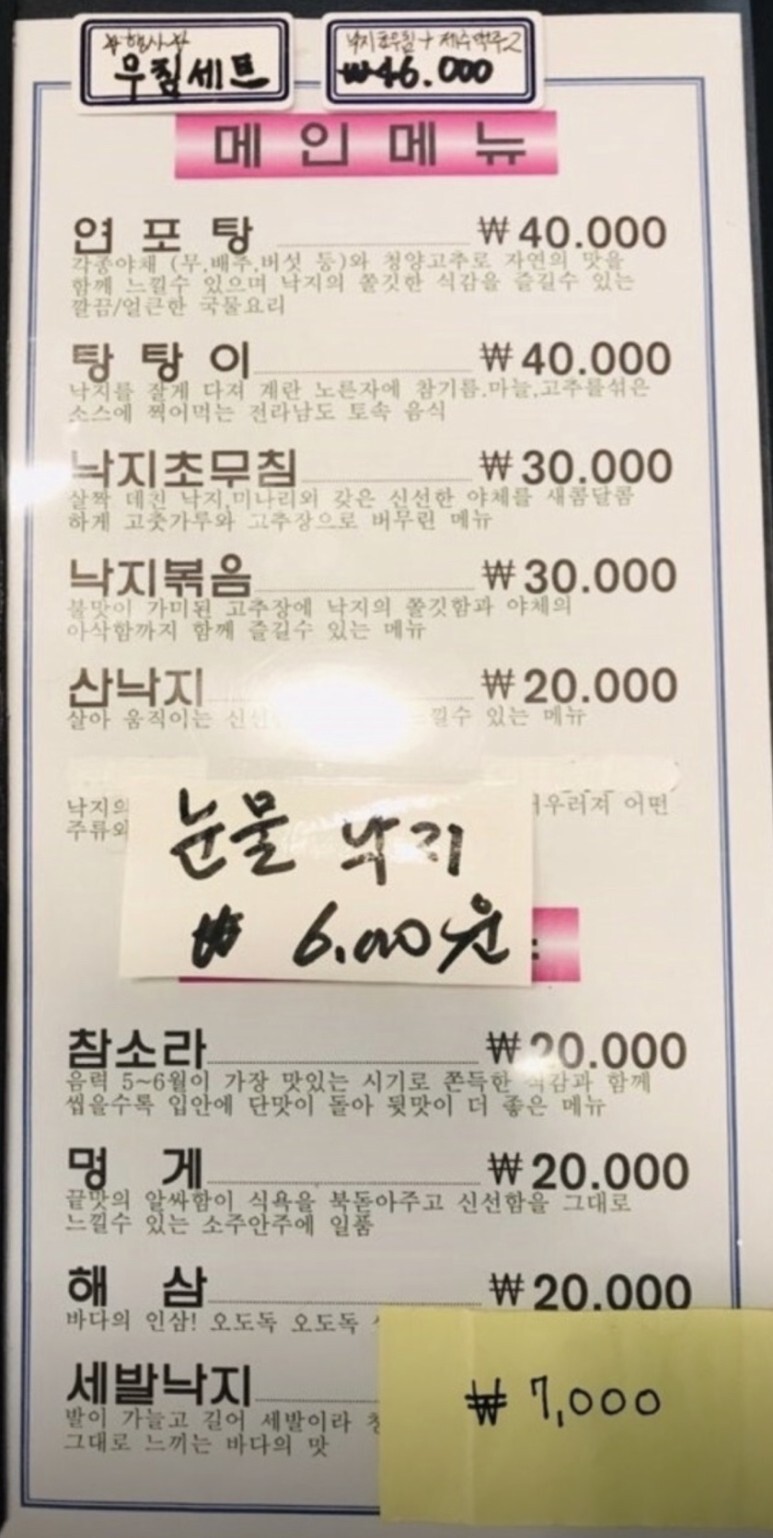 *행사*
무침세트
낙지초무침 + 제수맥주2
₩46.000
메인메뉴
연포탕 ₩40.000
각종야채 (무,배추,버섯 등)와 청양고추로 자연의 맛을
함께 느낄수 있으며 낙지의 쫄깃한 식감을 즐길수 있는
깔끔/얼큰한 국물요리
탕탕이 ₩40.000
낙지를 잘게 다져 계란 노른자에 참기름.마늘.고추를섞은
소스에 찍어먹는 전라남도 토속 음식
낙지초무침 ₩30.000
살짝 데친 낙지,미나리외 갖은 신선한 야체를 새콤달콤
하게 고춧가루와 고추장으로 버무린 메뉴
낙지볶음 ₩30.000
불맛이 가미된 고추장에 낙지의 쫄깃함과 야체의
아삭함까지 함께 즐길수 있는 메뉴
산낙지 ₩20.000
살아 움직이는 낄수 있는 메뉴
낙지의 어우러져 어떤
주류와
눈물 낙지
₩ 6.000원
참소라 ₩20.000
음력 5~6월이 가장 맛있는 시기로 쫀득한 식감과 함께
씹을수록 입안에 단맛이 돌아 뒷맛이 더 좋은 메뉴
멍게 ₩20.000
끝맛의 알싸함이 식욕을 북돋아주고 신선함을 그대로
느낄수 있는 소주안주에 일품
해삼 ₩20.000
바다의 인삼! 오도독 오도독
세발낙지 ₩7,000
발이 가늘고 길어 세발이라
그대로 느끼는 바다의 맛